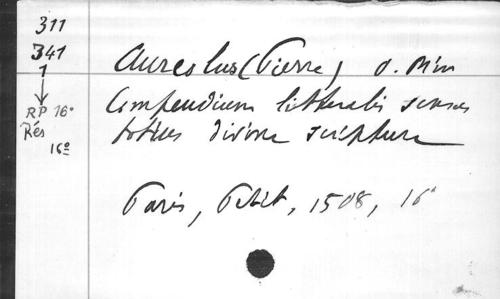 311
341
1
RP 16°
Rés
16°
Aureolus (Pierre) o. Min
Compendium litteralis sensus
totius divine scripture
Paris, Petit, 1508, 16°